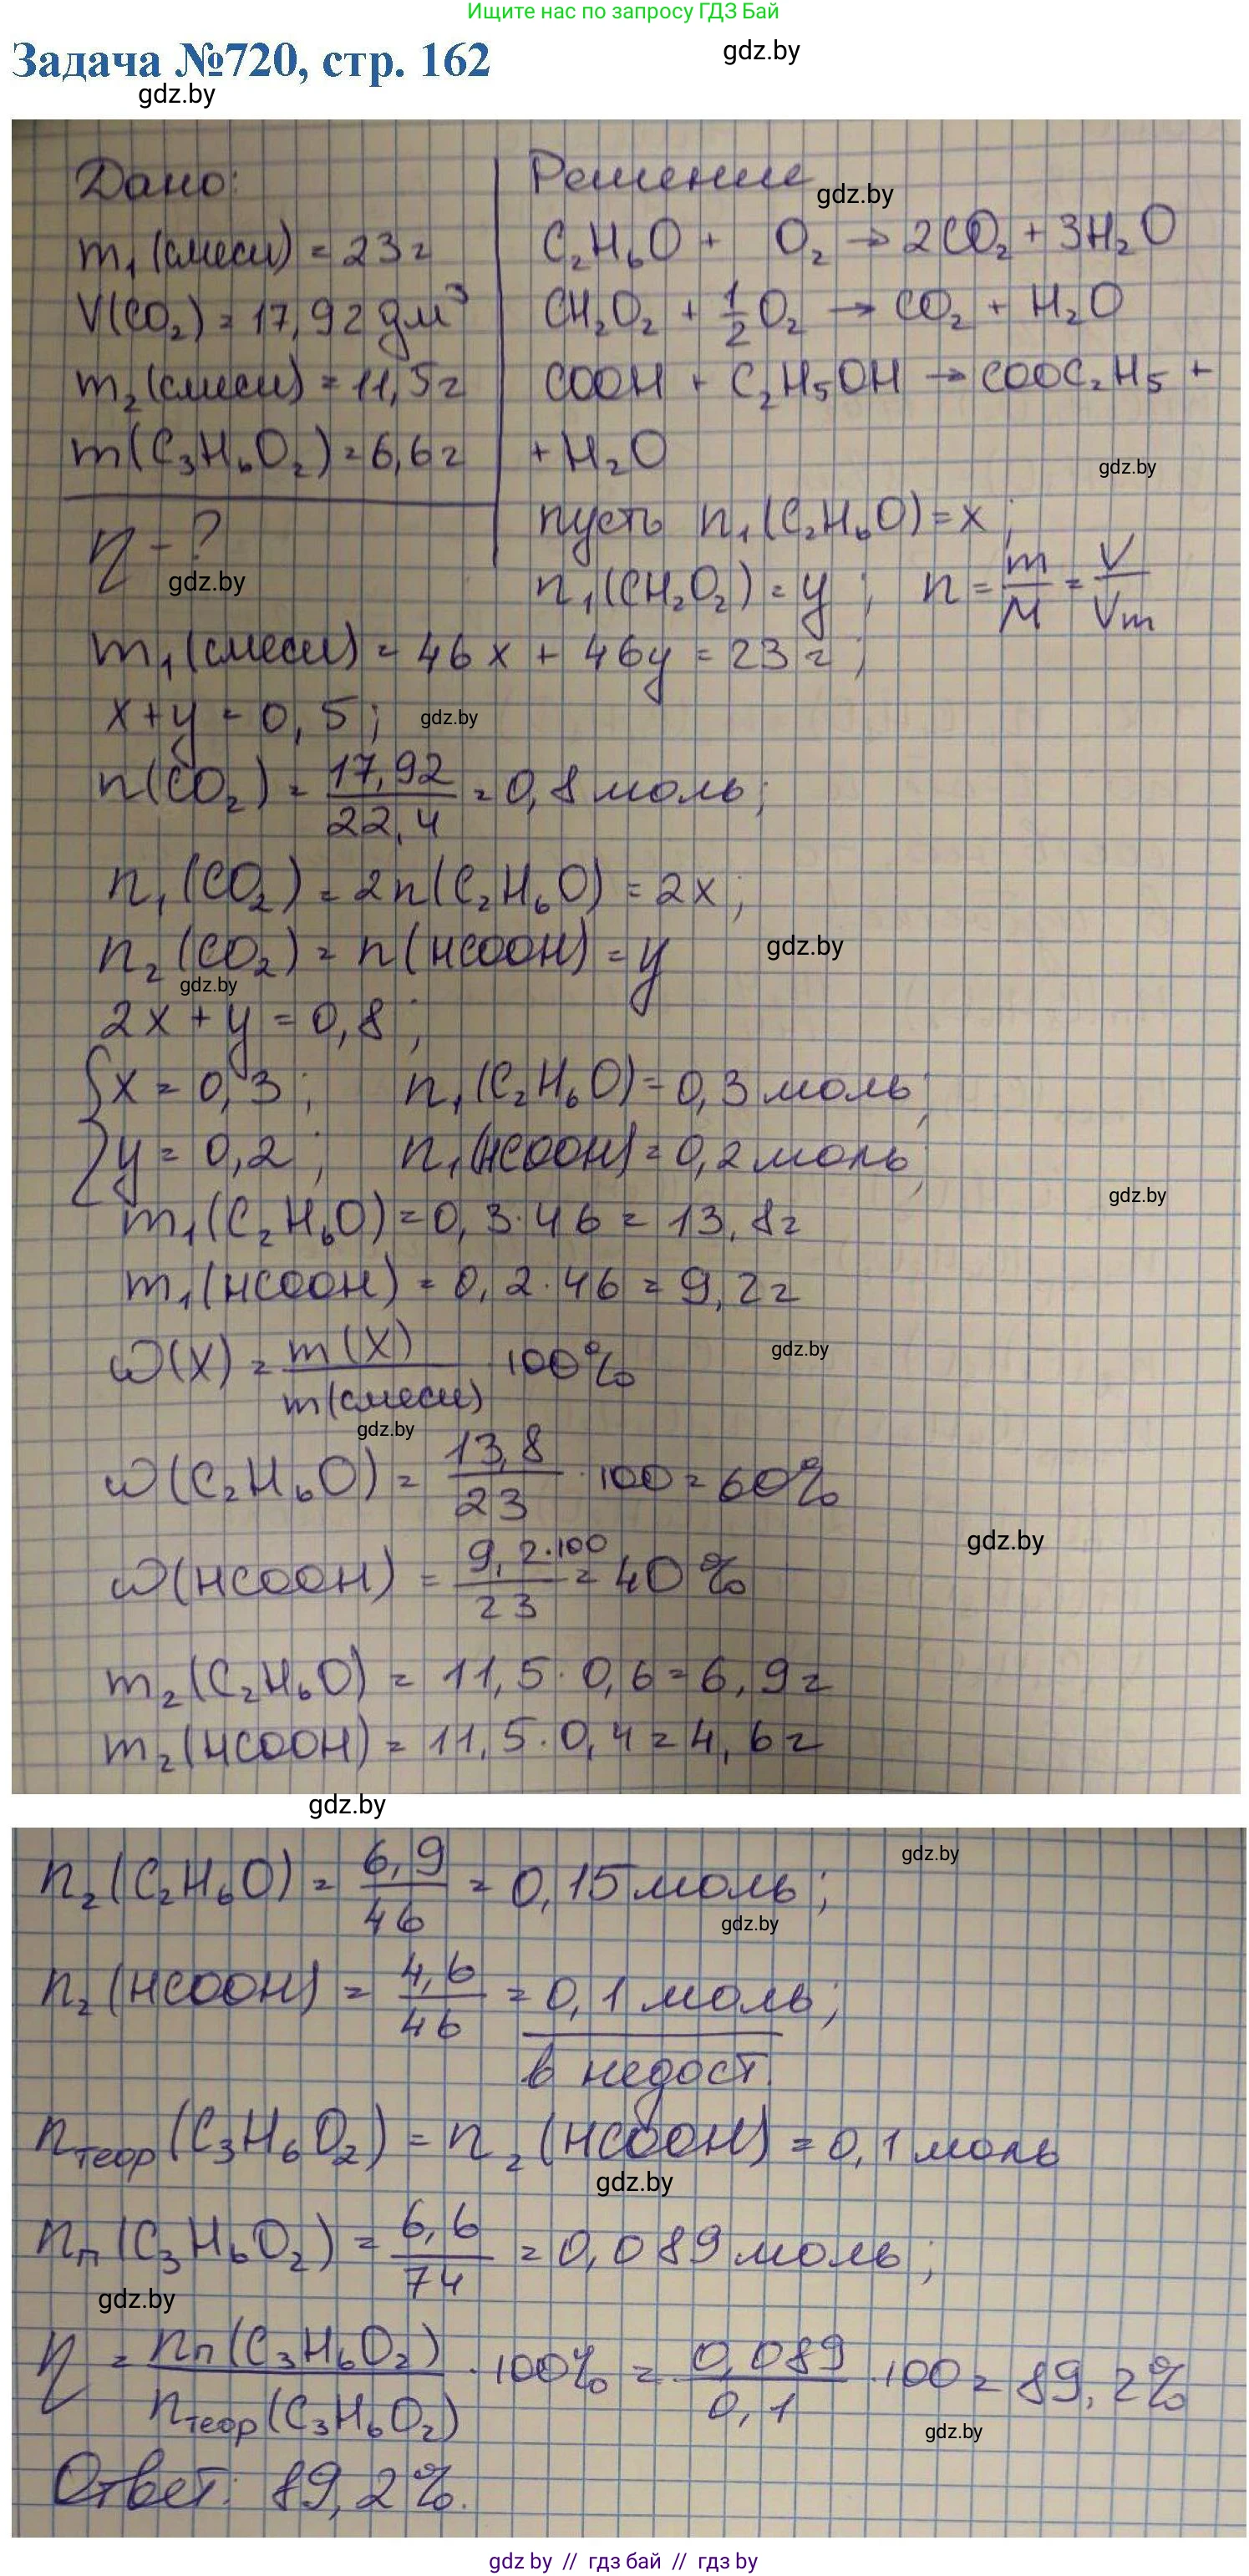 Ищите нас по запросу ГДЗ Бай
Задача №720, стр. 162
gdz.by
gdz.by
Дано:
Решение
gdz.by
m₁(смеси) = 23г
C₂H₆O + O₂ → 2CO₂ + 3H₂O
V(CO₂) = 17,92 дм³
CH₂O₂ + 1/2 O₂ → CO₂ + H₂O
m₂(смеси) = 11,5г
COOH + C₂H₅OH → COOC₂H₅ +
m(C₃H₆O₂) = 6,6г
+ H₂O
gdz.by
η - ?
gdz.by
пусть n₁(C₂H₆O) = x ;
n₁(CH₂O₂) = y ; n = m/M = V/Vm
m₁(смеси) = 46x + 46y = 23г ;
x + y = 0,5 ;
gdz.by
n(CO₂) = 17,92/22,4 = 0,8 моль ;
n₁(CO₂) = 2n(C₂H₆O) = 2x ;
n₂(CO₂) = n(HCOOH) = y
gdz.by
gdz.by
2x + y = 0,8 ;
{x = 0,3 ; n₁(C₂H₆O) = 0,3 моль ;
{y = 0,2 ; n₁(HCOOH) = 0,2 моль ;
gdz.by
m₁(C₂H₆O) = 0,3·46 = 13,8г
m₁(HCOOH) = 0,2·46 = 9,2г
ω(X) = m(X)/m(смеси) · 100%
gdz.by
gdz.by
ω(C₂H₆O) = 13,8/23 · 100 = 60%
gdz.by
ω(HCOOH) = 9,2·100/23 = 40%
m₂(C₂H₆O) = 11,5·0,6 = 6,9г
m₂(HCOOH) = 11,5·0,4 = 4,6г
gdz.by
gdz.by
n₂(C₂H₆O) = 6,9/46 = 0,15 моль ;
gdz.by
n₂(HCOOH) = 4,6/46 = 0,1 моль ;
в недост.
nтеор(C₃H₆O₂) = n₂(HCOOH) = 0,1 моль
gdz.by
nп(C₃H₆O₂) = 6,6/74 = 0,089 моль ;
gdz.by
η = nп(C₃H₆O₂)/nтеор(C₃H₆O₂) · 100% = 0,089/0,1 · 100 = 89,2%
gdz.by
Ответ: 89,2%.
gdz by // гдз бай // гдз by